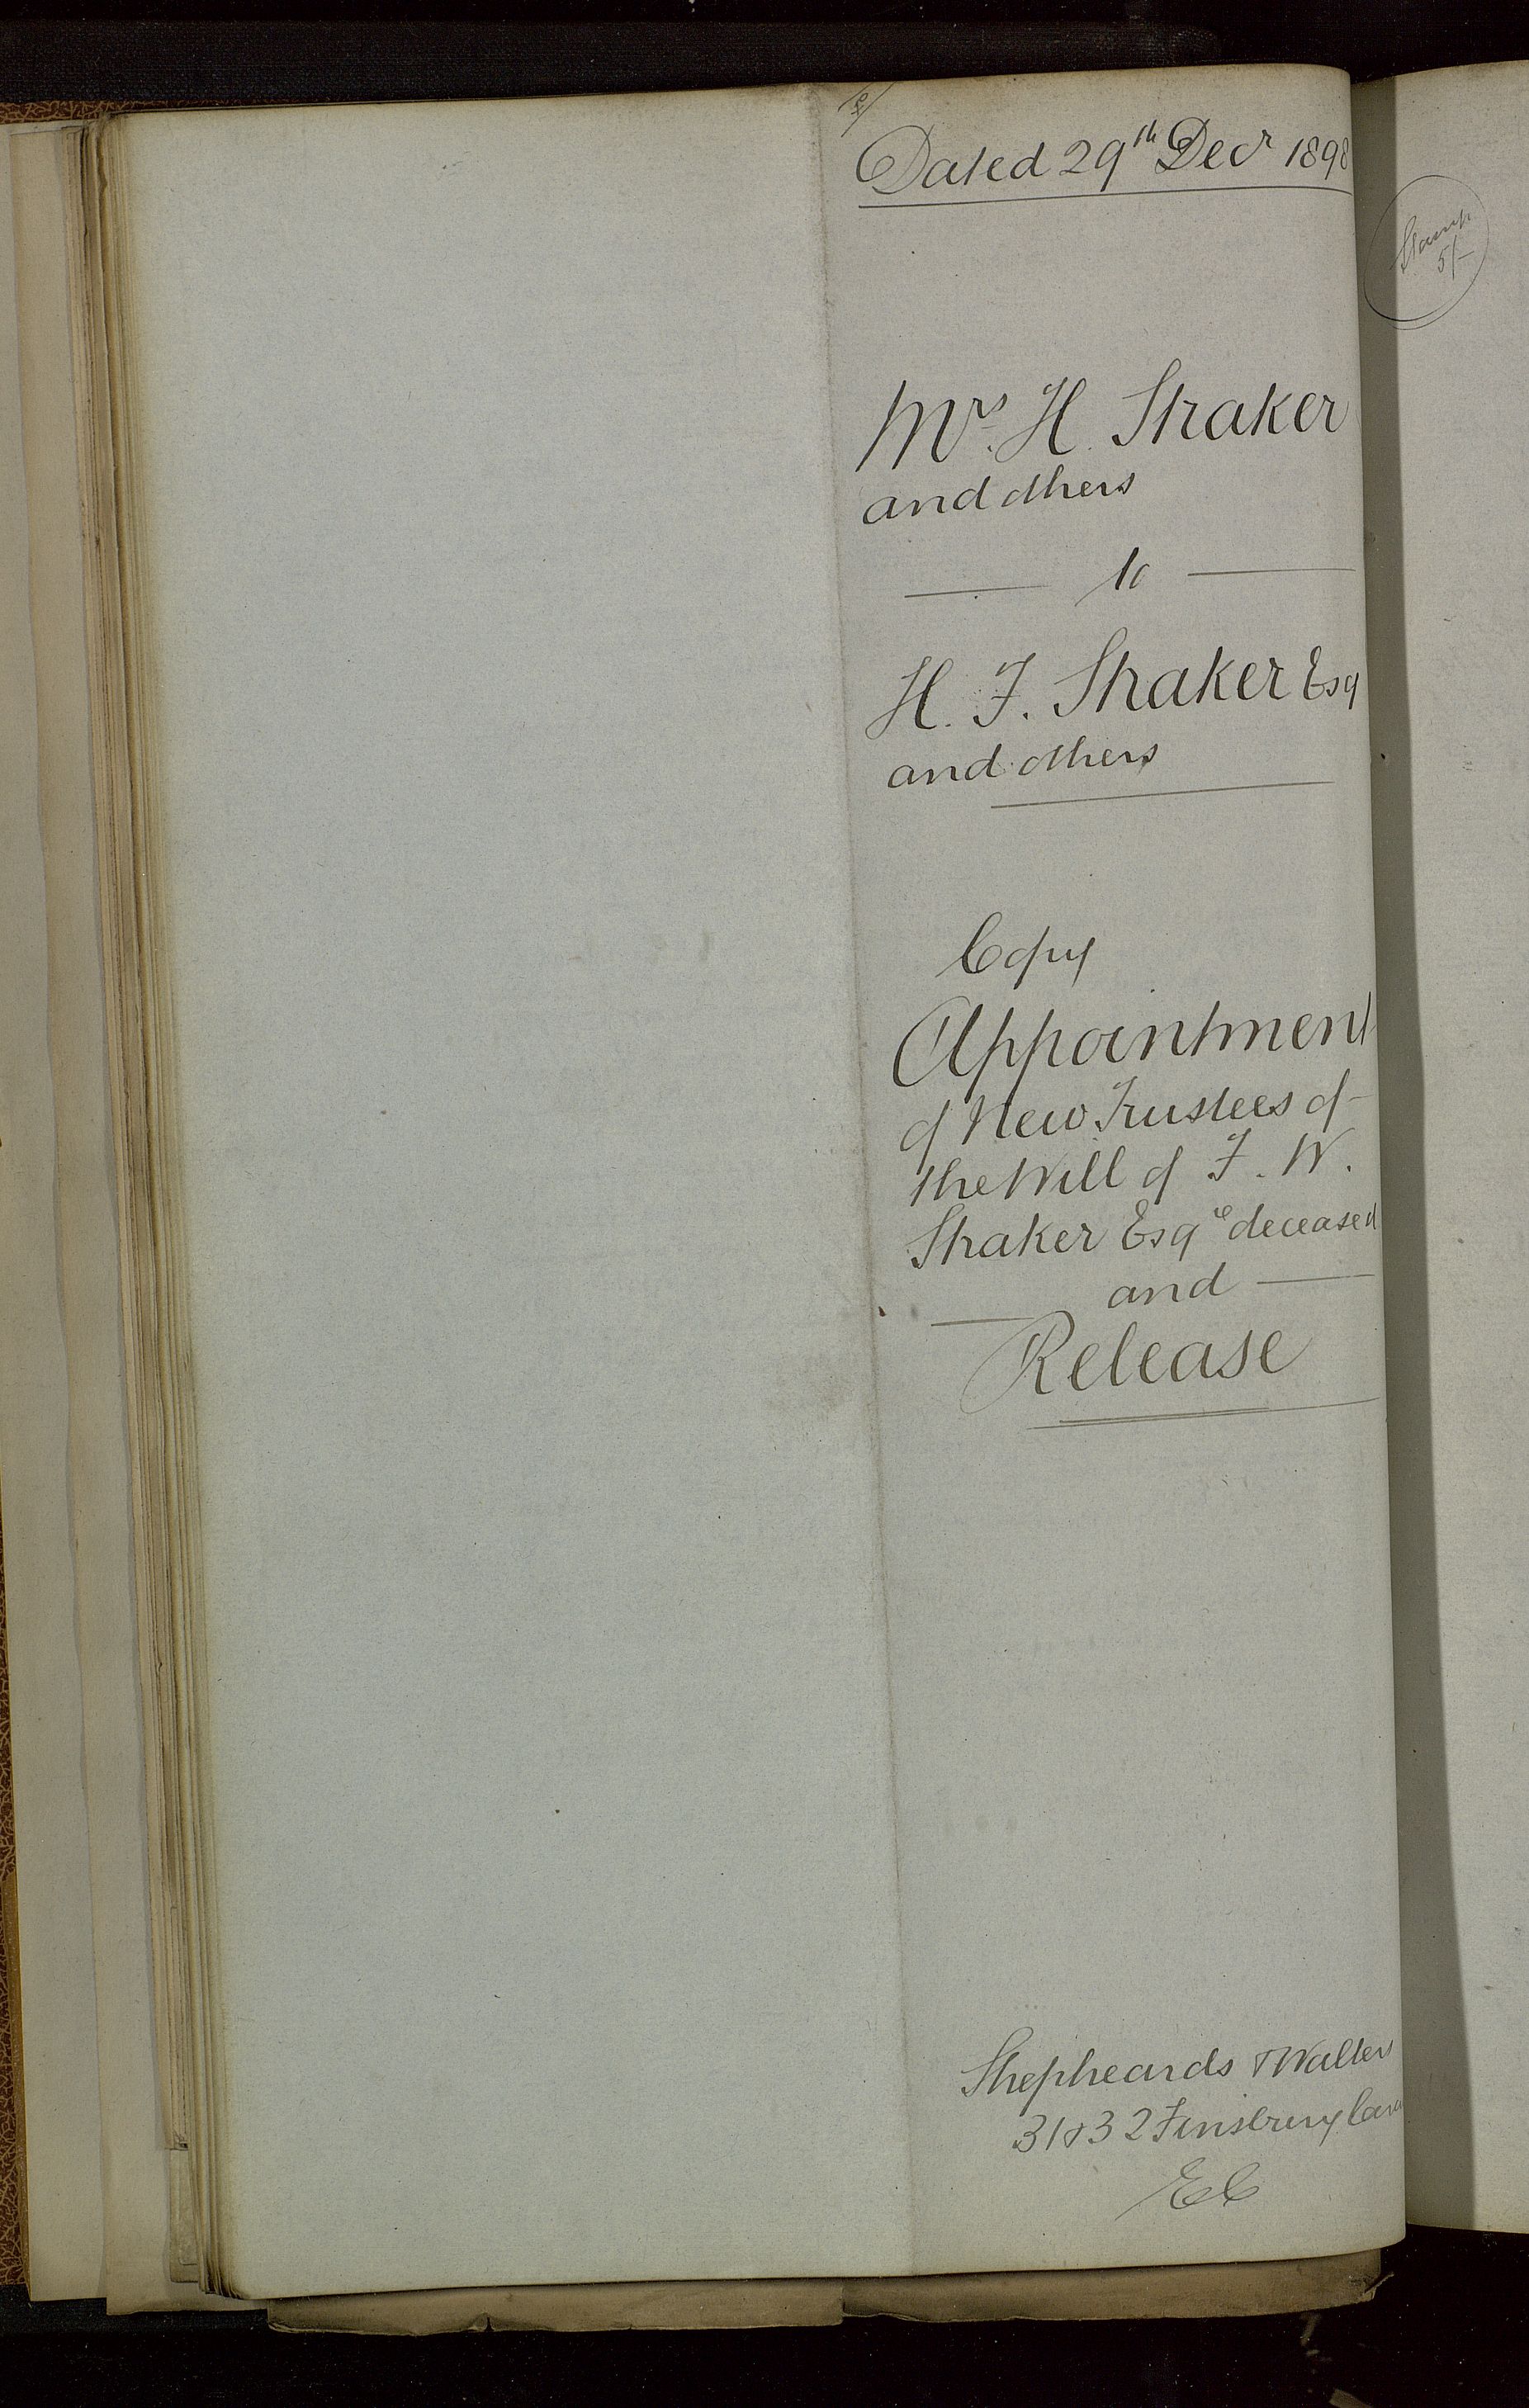 Dated 29th Decr 1898
Mrs. H. Straker
and others
to
H. F. Straker Esq
and others
Copy
Appointment
of New Trustees of
the Will of F. W.
Straker Esqre deceased
and
Release
Shepheards & Walters
31 & 32 Finsbury
EC
Stamp
5/-